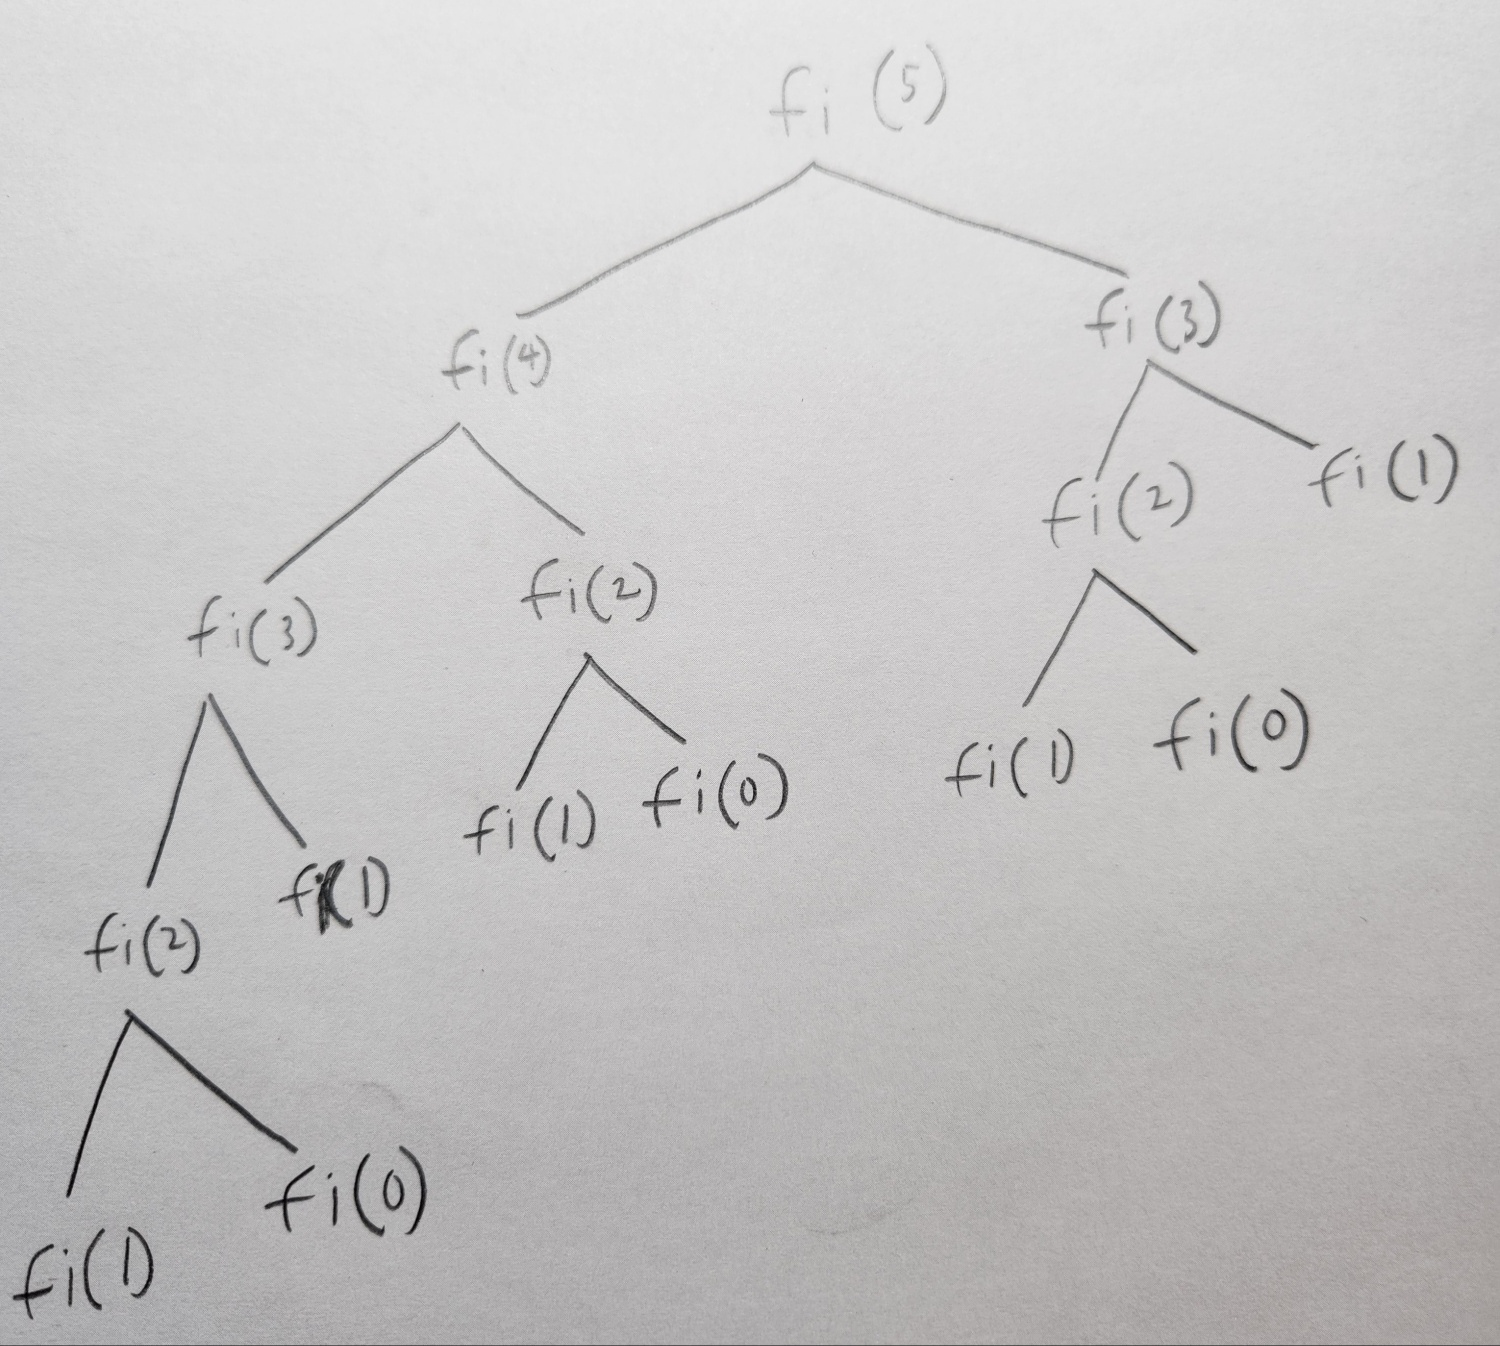 fi (5)
fi(4) fi(3)
fi(2) fi(1)
fi(3) fi(2)
fi(1) fi(0) fi(1) fi(0)
fi(2) fi(1)
fi(1) fi(0)